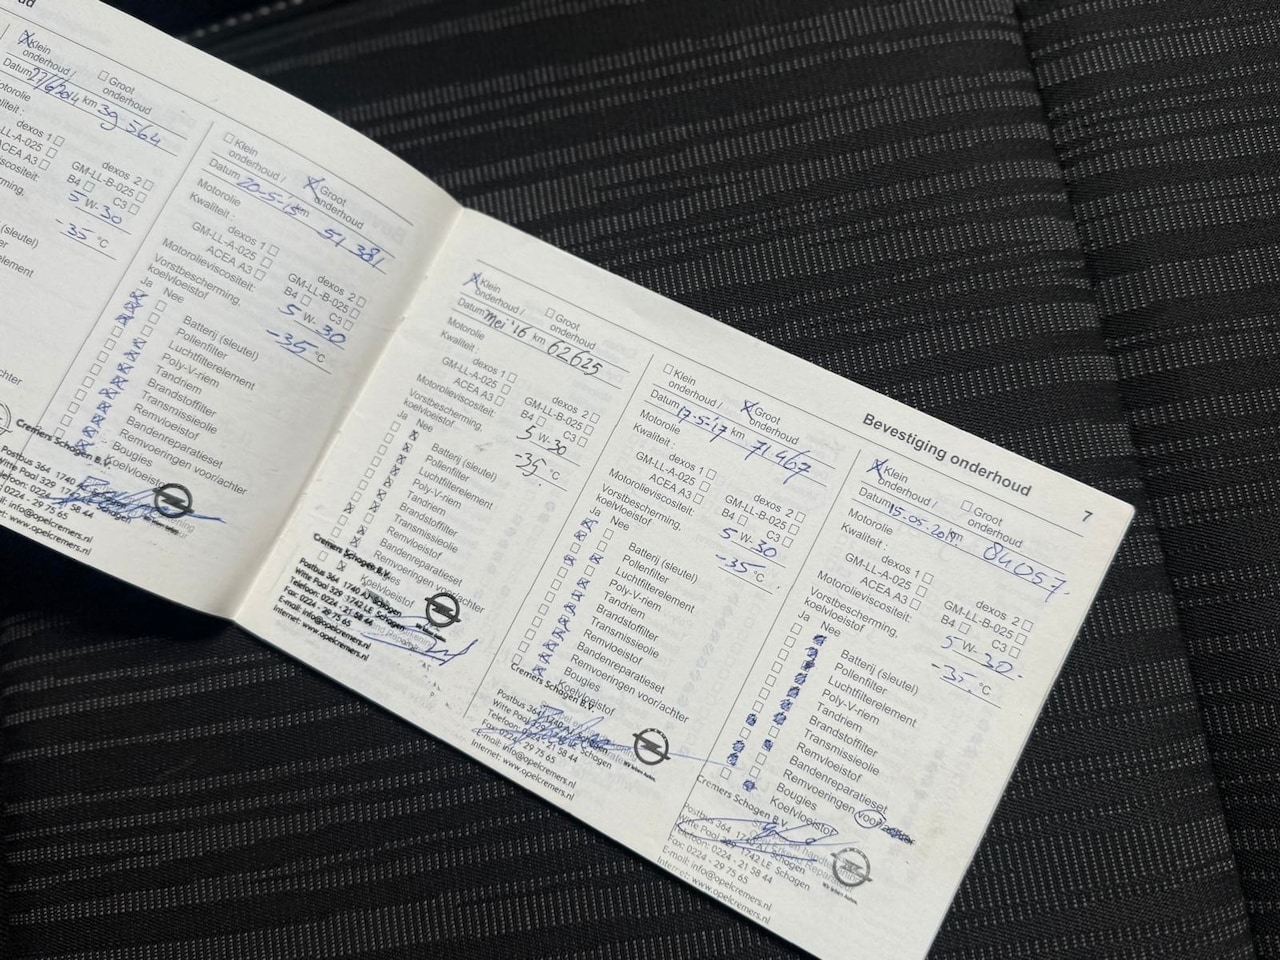 ud
Klein
onderhoud /
Groot
onderhoud
Datum 27/6/2014 km 39 564
otorolie
aliteit :
dexos 1
dexos 2
-LL-A-025
GM-LL-B-025
ACEA A3
B4
C3
viscositeit:
5 W- 30
rming,
-35 °C
(sleutel)
er
element
achter
Cremers Schagen B.V.
Postbus 364 1740
Witte Paal 329
Telefoon: 0224
58 44
Schagen
29 75 65
info@opelcremers.nl
www.opelcremers.nl
Klein
onderhoud /
Groot
onderhoud
Datum 20-5-15 km 51 381
Motorolie
Kwaliteit :
dexos 1
dexos 2
GM-LL-A-025
GM-LL-B-025
ACEA A3
B4
C3
Motorolieviscositeit:
5 W- 30
Vorstbescherming,
koelvloeistof
-35 °C
Ja Nee
Batterij (sleutel)
Pollenfilter
Luchtfilterelement
Poly-V-riem
Tandriem
Brandstoffilter
Transmissieolie
Remvloeistof
Bandenreparatieset
Remvoeringen voor/achter
Bougies
Koelvloeistof
Klein
onderhoud /
Groot
onderhoud
Datum Mei '16 km 62625
Motorolie
Kwaliteit :
dexos 1
dexos 2
GM-LL-A-025
GM-LL-B-025
ACEA A3
B4
C3
Motorolieviscositeit:
5 W-30
Vorstbescherming,
koelvloeistof
-35 °C
Ja Nee
Batterij (sleutel)
Pollenfilter
Luchtfilterelement
Poly-V-riem
Tandriem
Brandstoffilter
Transmissieolie
Remvloeistof
Bandenreparatieset
Remvoeringen voor/achter
Bougies
Koelvloeistof
Cremers Schagen B.V.
Postbus 364 1740 AJ Schagen
Witte Paal 329 1742 LE Schagen
Telefoon: 0224 - 21 58 44
Fax: 0224 - 29 75 65
E-mail: info@opelcremers.nl
Internet: www.opelcremers.nl
Klein
onderhoud /
Groot
onderhoud
Datum 17-5-'17 km 71467
Motorolie
Kwaliteit :
dexos 1
dexos 2
GM-LL-A-025
GM-LL-B-025
ACEA A3
B4
C3
Motorolieviscositeit:
5 W-30
Vorstbescherming,
koelvloeistof
-35 °C
Ja Nee
Batterij (sleutel)
Pollenfilter
Luchtfilterelement
Poly-V-riem
Tandriem
Brandstoffilter
Transmissieolie
Remvloeistof
Bandenreparatieset
Remvoeringen voor/achter
Bougies
Koelvloeistof
Cremers Schagen B.V.
Postbus 364 1740 AJ Schagen
Witte Paal 329 1742 LE Schagen
Telefoon: 0224 - 21 58 44
Fax: 0224 - 29 75 65
E-mail: info@opelcremers.nl
Internet: www.opelcremers.nl
Wir leben Autos.
Bevestiging onderhoud
7
Klein
onderhoud /
Groot
onderhoud
Datum 15-05-2018 km 84057
Motorolie
Kwaliteit :
dexos 1
dexos 2
GM-LL-A-025
GM-LL-B-025
ACEA A3
B4
C3
Motorolieviscositeit:
5 W-30
Vorstbescherming,
koelvloeistof
-35 °C
Ja Nee
Batterij (sleutel)
Pollenfilter
Luchtfilterelement
Poly-V-riem
Tandriem
Brandstoffilter
Transmissieolie
Remvloeistof
Bandenreparatieset
Remvoeringen voor/achter
Bougies
Koelvloeistof
Cremers Schagen B.V.
Postbus 364 1740 AJ Schagen
Witte Paal 329 1742 LE Schagen
Telefoon: 0224 - 21 58 44
Fax: 0224 - 29 75 65
E-mail: info@opelcremers.nl
Internet: www.opelcremers.nl
Wir leben Autos.